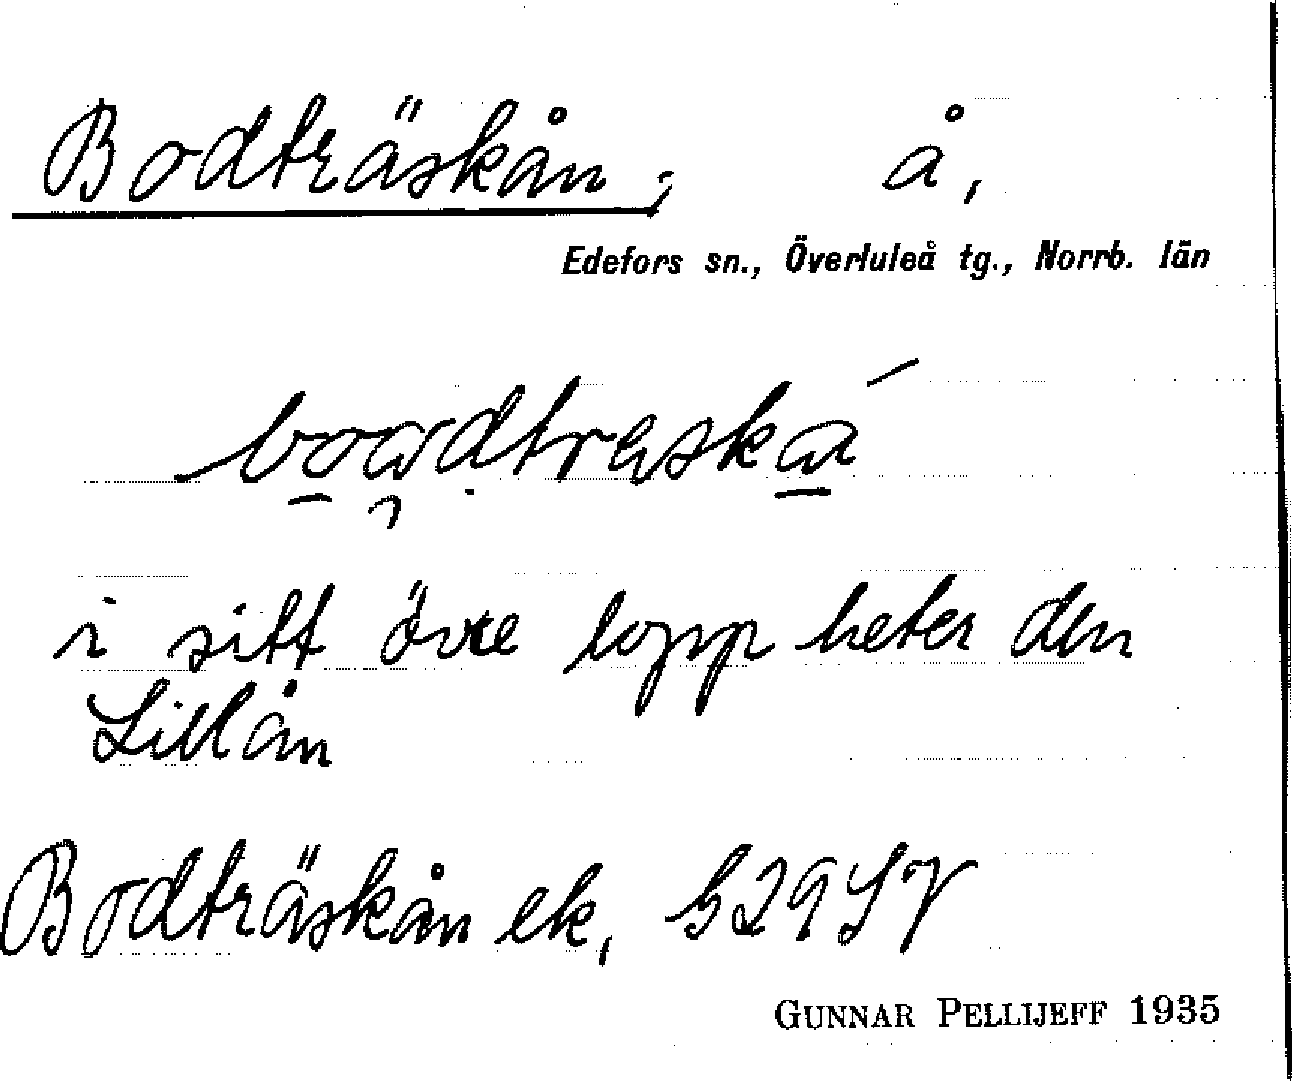 Bodträskån, å,
Edefors sn., Överluleå tg., Norrb. län
i sitt övre lopp heter den
Lillån
Bodträskån ek, 529SV
GUNNAR PELLIJEFF 1935